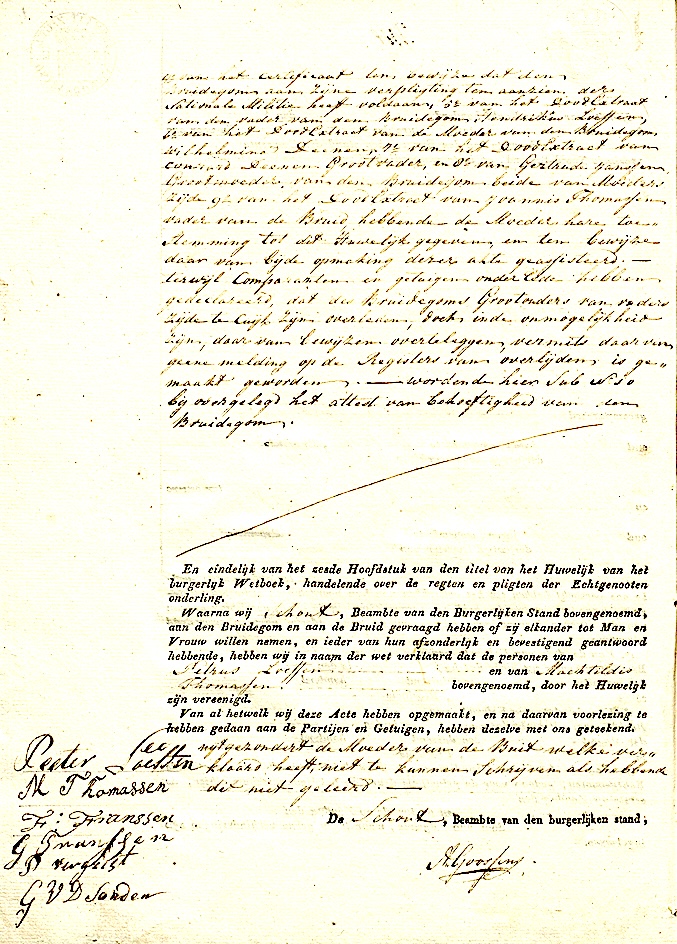 van het certificaat ten bewijze dat den
Bruidegom aan zijne verpligting ten aanzien der
Nationale Militie heeft voldaan, van het DoodExtract
van den vader van den Bruidegom, Hendrikus Loeffen,
van het DoodExtract van de Moeder van den Bruidegom,
Wilhelmina Deenen, 7e van het DoodExtract van
Coenraad Deenen Grootvader, en 8e van Geertruda Janssen
Grootmoeder, van den Bruidegom beide van Moeders
zijde 9e van het DoodExtract van Joannis Thomassen
vader van de Bruid, hebbende de Moeder hare toe„
stemming tot dit Huwelijk gegeven, en ten bewijze
daar van bijde opmaking dezer akte geassisteerd. —
terwijl Comparanten en getuigen onder Eede hebben
gedeclareerd, dat des Bruidegoms Grootouders van vaders
zijde te Cuijk zijn overleden, doch in de onmogelijkheid
zijn, daar van bewijzen overteleggen, vermits daar van
geene melding op de Registers van overlijden is ge„
maakt geworden. — wordende hier Sub No 10
bij overgelegd het attest van behoeftigheid van den
Bruidegom.
En eindelijk van het zesde Hoofdstuk van den titel van het Huwelijk van het
burgerlijk Wetboek, handelende over de regten en pligten der Echtgenooten
onderling.
Waarna wij Schout, Beambte van den Burgerlijken Stand bovengenoemd,
aan den Bruidegom en aan de Bruid gevraagd hebben of zij elkander tot Man en
Vrouw willen nemen, en ieder van hun afzonderlijk en bevestigend geantwoord
hebbende, hebben wij in naam der wet verklaard dat de personen van
Petrus Loeffen en van Machtildis
Thomassen bovengenoemd, door het Huwelijk
zijn vereenigd.
Van al hetwelk wij deze Acte hebben opgemaakt, en na daarvan voorlezing te
hebben gedaan aan de Partijen en Getuigen, hebben dezelve met ons geteekend.
uytgezondert de Moeder van de Bruit welke ver„
klaard heeft, niet te kunnen Schrijven als hebbende
dit niet geleerd. —
Peeter Loeffen
M Thomassen
F: Franssen
G Franssen
P vergelst
G V D Sanden
De Schout, Beambte van den burgerlijken stand;
A. Goossens.